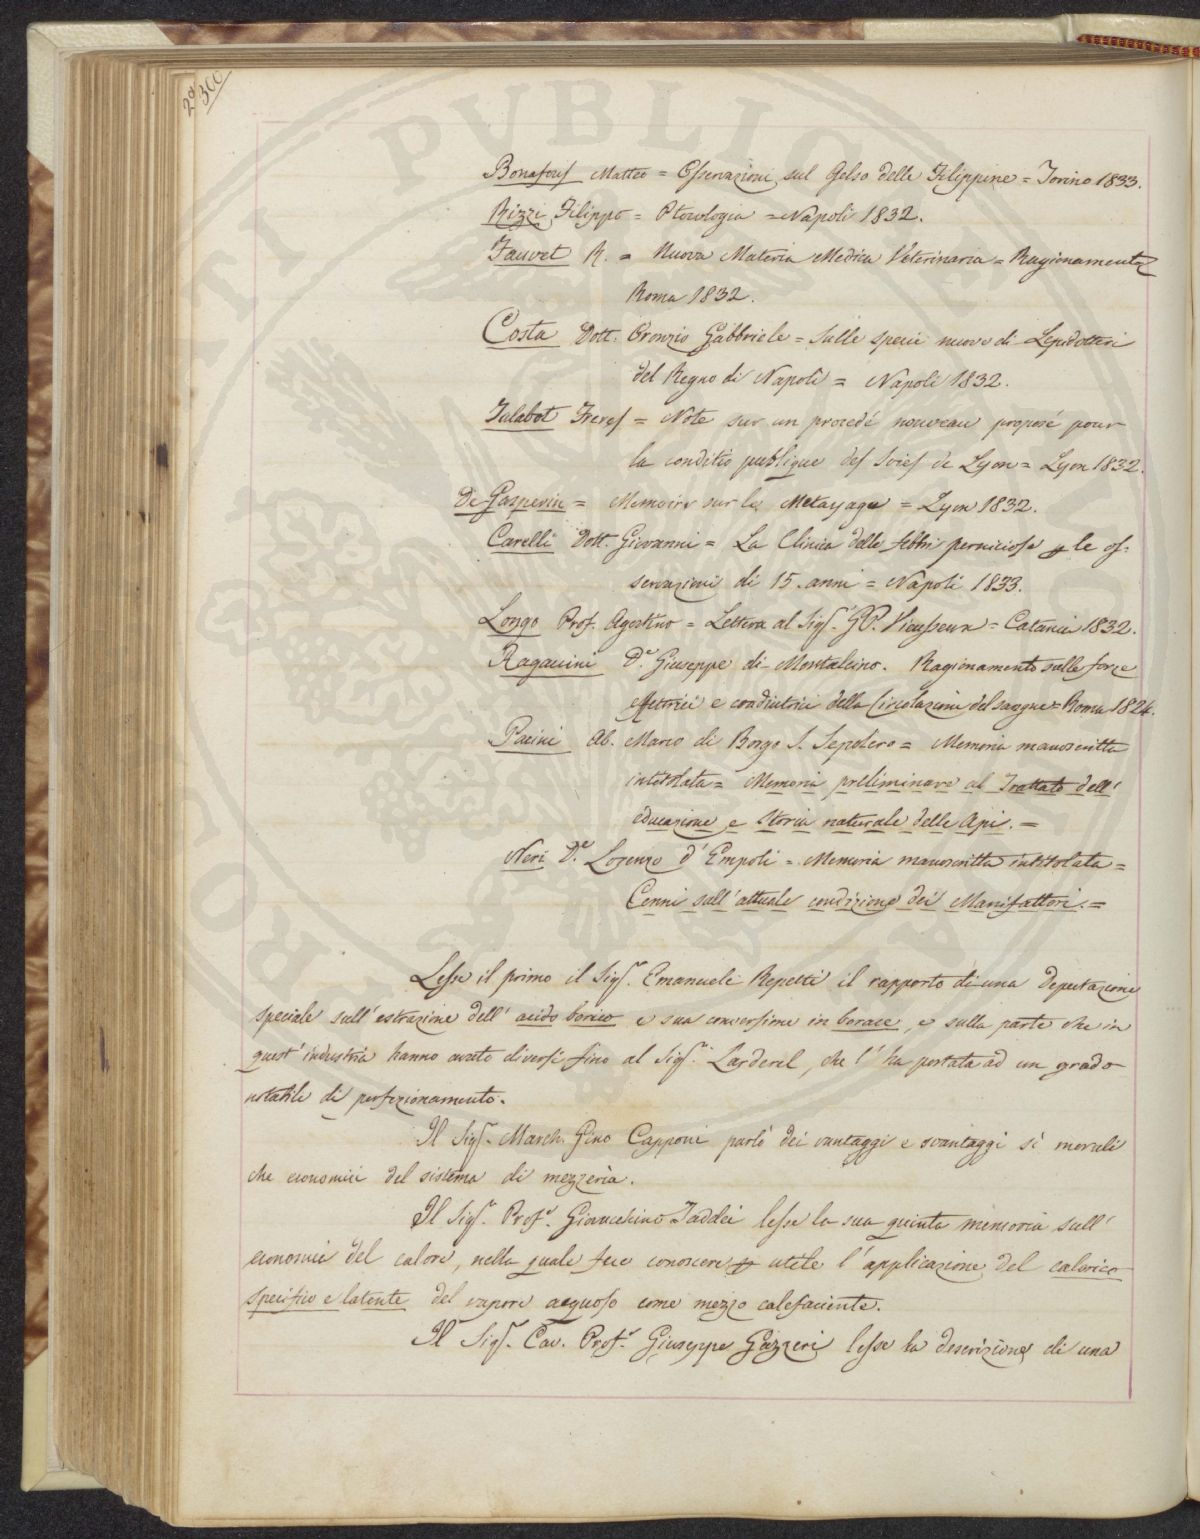 2ª 300
Bonafous Matteo = Osservazioni sul Gelso delle Filippine = Torino 1833.
Rizzi Filippo = Ptocologia = Napoli 1832.
Fauvet R. = Nuova Materia Medica Veterinaria = Ragionamento
Roma 1832.
Costa Dott. Oronzio Gabbriele = Sulle specie nuove di Lepidotteri
del Regno di Napoli = Napoli 1832.
Talabot Freres = Note sur un procedé nouveau proposé pour
la conditio publique des Soies de Lyon = Lyon 1832.
De-Gasperin = Memoire sur le Metayage = Lyon 1832.
Carelli Dott. Giovanni = La Clinica delle febbri perniciose p le os-
servazioni di 15. anni = Napoli 1833.
Longo Prof. Agostino = Lettera al Sigr. G. P. Vieusseux = Catania 1832.
Ragazzini Dr. Giuseppe di Montalcino. Ragionamento sulle forze
Motrici e coadiutrici della Circolazione del sangue = Roma 1824.
Pacini Ab. Marco di Borgo S. Sepolcro = Memoria manoscritta
intitolata = Memoria preliminare al Trattato dell'
educazione e storia naturale delle Api. =
Neri Dr. Lorenzo d'Empoli = Memoria manoscritta intitolata =
Cenni sull'attuale condizione dei Manifattori. =
Lesse il primo il Sigr. Emanuele Repetti il rapporto di una Deputazione
speciale sull'estrazione dell'acido borico e sua conversione in borace, e sulla parte che in
quest'industria hanno avuto diversi fino al Sigr. Larderel, che l'ha portata ad un grado
notabile di perfezionamento.
Il Sigr. March. Gino Capponi parlò dei vantaggi e svantaggi sì morali
che economici del sistema di mezzeria.
Il Sigr. Profr. Giovacchino Taddei lesse la sua quinta memoria sull'
economia del calore, nella quale fece conoscere p utile l'applicazione del calorico
specifico e latente del vapore acquoso come mezzo calefaciente.
Il Sigr. Cav. Profr. Giuseppe Gazzeri lesse la descrizione di una